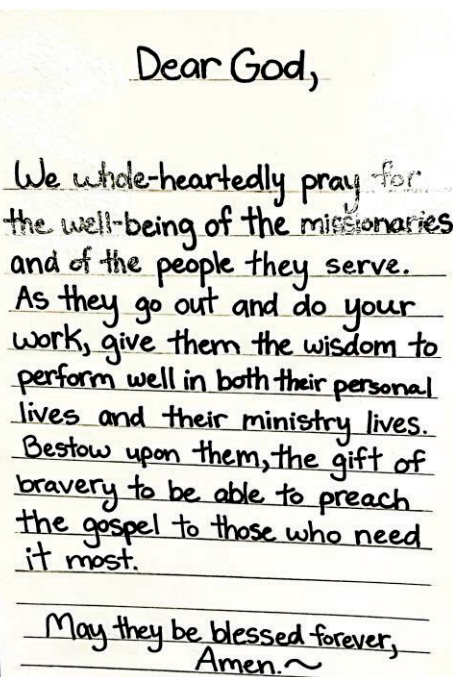 Dear God,
We whole-heartedly pray for
the well-being of the missionaries
and of the people they serve.
As they go out and do your
work, give them the wisdom to
perform well in both their personal
lives and their ministry lives.
Bestow upon them, the gift of
bravery to be able to preach
the gospel to those who need
it most.
May they be blessed forever,
Amen.~